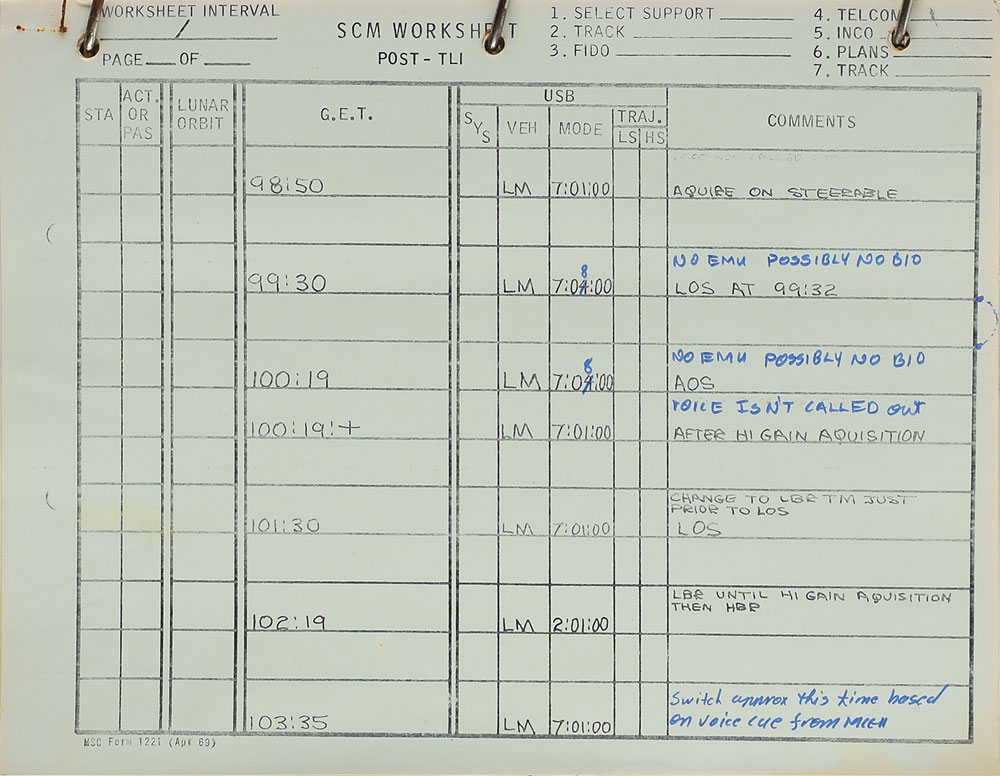 WORKSHEET INTERVAL
/
PAGE ___ OF ___
SCM WORKSHEET
POST - TLI
1. SELECT SUPPORT
2. TRACK
3. FIDO
4. TELCOM
5. INCO
6. PLANS
7. TRACK
STA ACT. OR PAS LUNAR ORBIT G.E.T. USB COMMENTS
SYS VEH MODE TRAJ.
LS HS
98:50 LM 7:01:00 AQUIRE ON STEERABLE
NO EMU POSSIBLY NO BIO
8
99:30 LM 7:04:00 LOS AT 99:32
NO EMU POSSIBLY NO BIO
8
100:19 LM 7:04:00 AOS
VOICE ISN'T CALLED OUT
100:19:+ LM 7:01:00 AFTER HI GAIN AQUISITION
CHANGE TO LBR TM JUST
PRIOR TO LOS
101:30 LM 7:01:00 LOS
LBR UNTIL HI GAIN AQUISITION
THEN HBR
102:19 LM 2:01:00
Switch approx this time based
on voice cue from
103:35 LM 7:01:00
MSC Form 1221 (Apr 69)